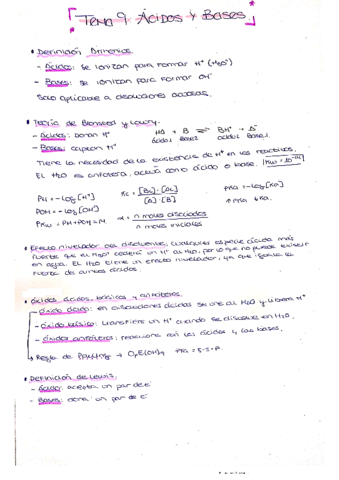 Tema 9 Ácidos y Bases.
• Definición Arrhenius
- Ácidos: se ionizan para formar H⁺ (H₃O⁺)
- Bases: se ionizan para formar OH⁻
Solo aplicable a disoluciones acuosas.
• Teoría de Bronsted y Lowry.
- Ácidos: donan H⁺
- Bases: captan H⁺
HA + B ⇌ BH⁺ + A⁻
ácido1 Base2 ácido2 Base1.
Tiene la necesidad de la existencia de H⁺ en los reactivos.
El H₂O es anfótera, actúa como ácido o base. Kw = 10⁻¹⁴
PH = -log[H⁺]
POH = -log[OH⁻]
PKw = PH + POH = 14.
Kc =
α = n moles disociados / n moles iniciales
PKa = -log[Ka]
↑PKa ↓Ka.
• Efecto nivelador del disolvente, cualquier especie ácida más
fuerte que el H₃O⁺ cederá un H⁺ al H₂O, por lo que no puede existir
en agua. El H₂O tiene un efecto nivelador, ya que iguala la
fuerza de ambos ácidos.
• Óxidos ácidos, básicos y anfóteros.
- óxido ácido: en disoluciones ácidas se une al H₂O y libera H⁺
- óxido básico: transfiere un H⁺ cuando se disuelve en H₂O.
- óxidos anfóteros: reacciona con los ácidos y las bases.
↳ Regla de
• Definición de Lewis.
- Ácido: acepta un par de e⁻
- Bases: dona un par de e⁻